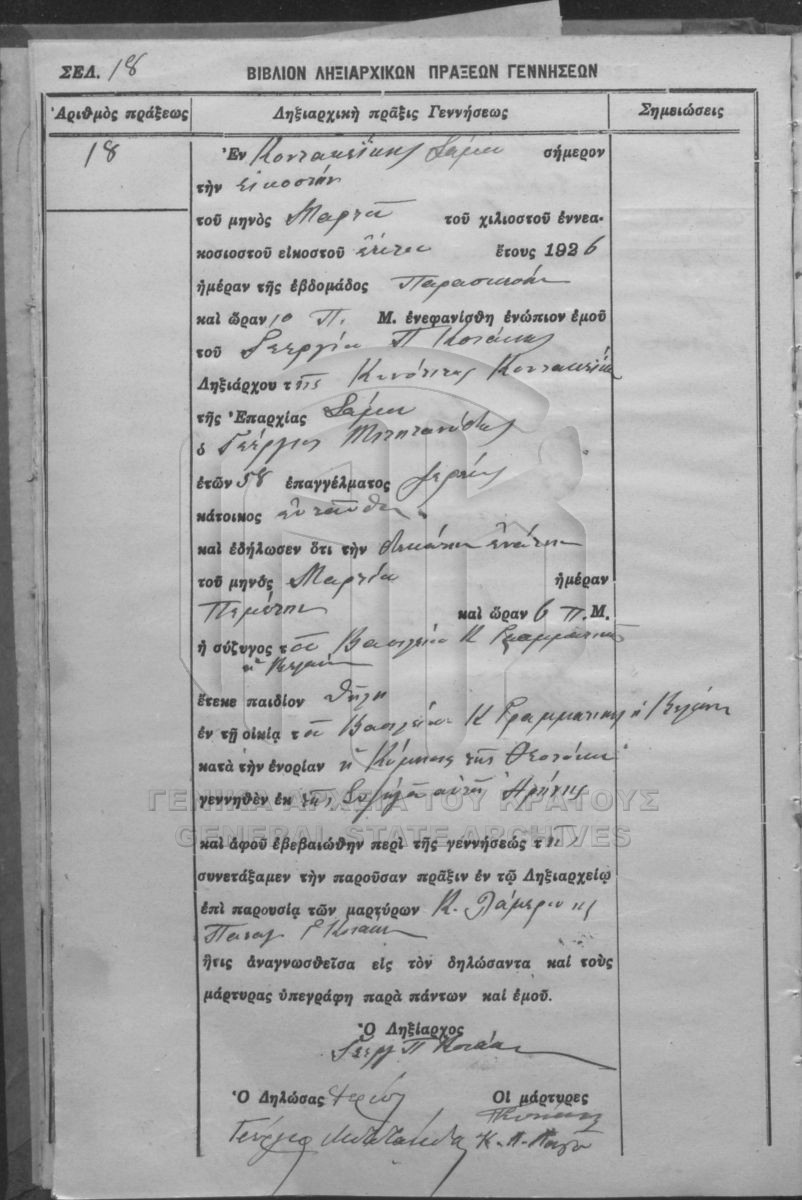 ΣΕΛ. 18
ΒΙΒΛΙΟΝ ΛΗΞΙΑΡΧΙΚΩΝ ΠΡΑΞΕΩΝ ΓΕΝΝΗΣΕΩΝ
Ἀριθμὸς πράξεως Ληξιαρχικὴ πρᾶξις Γεννήσεως Σημειώσεις
18
Ἐν Κοντακέϊκης Σάμου σήμερον
τὴν εἰκοστὴν
τοῦ μηνὸς Μαρτίου τοῦ χιλιοστοῦ ἐννεα-
κοσιοστοῦ εἰκοστοῦ ἕκτου ἔτους 1926
ἡμέραν τῆς ἑβδομάδος Παρασκευὴν
καὶ ὥραν 10 Π. Μ. ἐνεφανίσθη ἐνώπιον ἐμοῦ
τοῦ Γεωργίου Π Κοτάκη
Ληξιάρχου τῆς Κοινότητος Κοντακέϊκα
τῆς Ἐπαρχίας Σάμου
ὁ Γεώργιος
ἐτῶν 58 ἐπαγγέλματος Ἱερεὺς
κάτοικος ἐνταῦθα
καὶ ἐδήλωσεν ὅτι τὴν δεκάτην ἐνάτην
τοῦ μηνὸς Μαρτίου ἡμέραν
Πέμπτην καὶ ὥραν 6 Π.Μ.
ἡ σύζυγος τοῦ Βασιλείου Κ Γραμματικοῦ
ἔτεκε παιδίον θῆλυ
ἐν τῇ οἰκίᾳ τοῦ Βασιλείου Κ Γραμματικοῦ ἢ
κατὰ τὴν ἐνορίαν ἡ Κοίμησις τῆς Θεοτόκου
γεννηθὲν ἐκ τῆς Συζύγου αὐτοῦ
καὶ ἀφοῦ ἐβεβαιώθην περὶ τῆς γεννήσεώς τ
συνετάξαμεν τὴν παροῦσαν πρᾶξιν ἐν τῷ Ληξιαρχείῳ
ἐπὶ παρουσίᾳ τῶν μαρτύρων Κ.
Παναγ Γ
ἥτις ἀναγνωσθεῖσα εἰς τὸν δηλώσαντα καὶ τοὺς
μάρτυρας ὑπεγράφη παρὰ πάντων καὶ ἐμοῦ.
Ὁ Ληξίαρχος
Γεωργ Π Κοτάκη
Ὁ Δηλώσας Οἱ μάρτυρες
Γεώργιος
Κ. Π.
ΓΕΝΙΚΑ ΑΡΧΕΙΑ ΤΟΥ ΚΡΑΤΟΥΣ
GENERAL STATE ARCHIVES